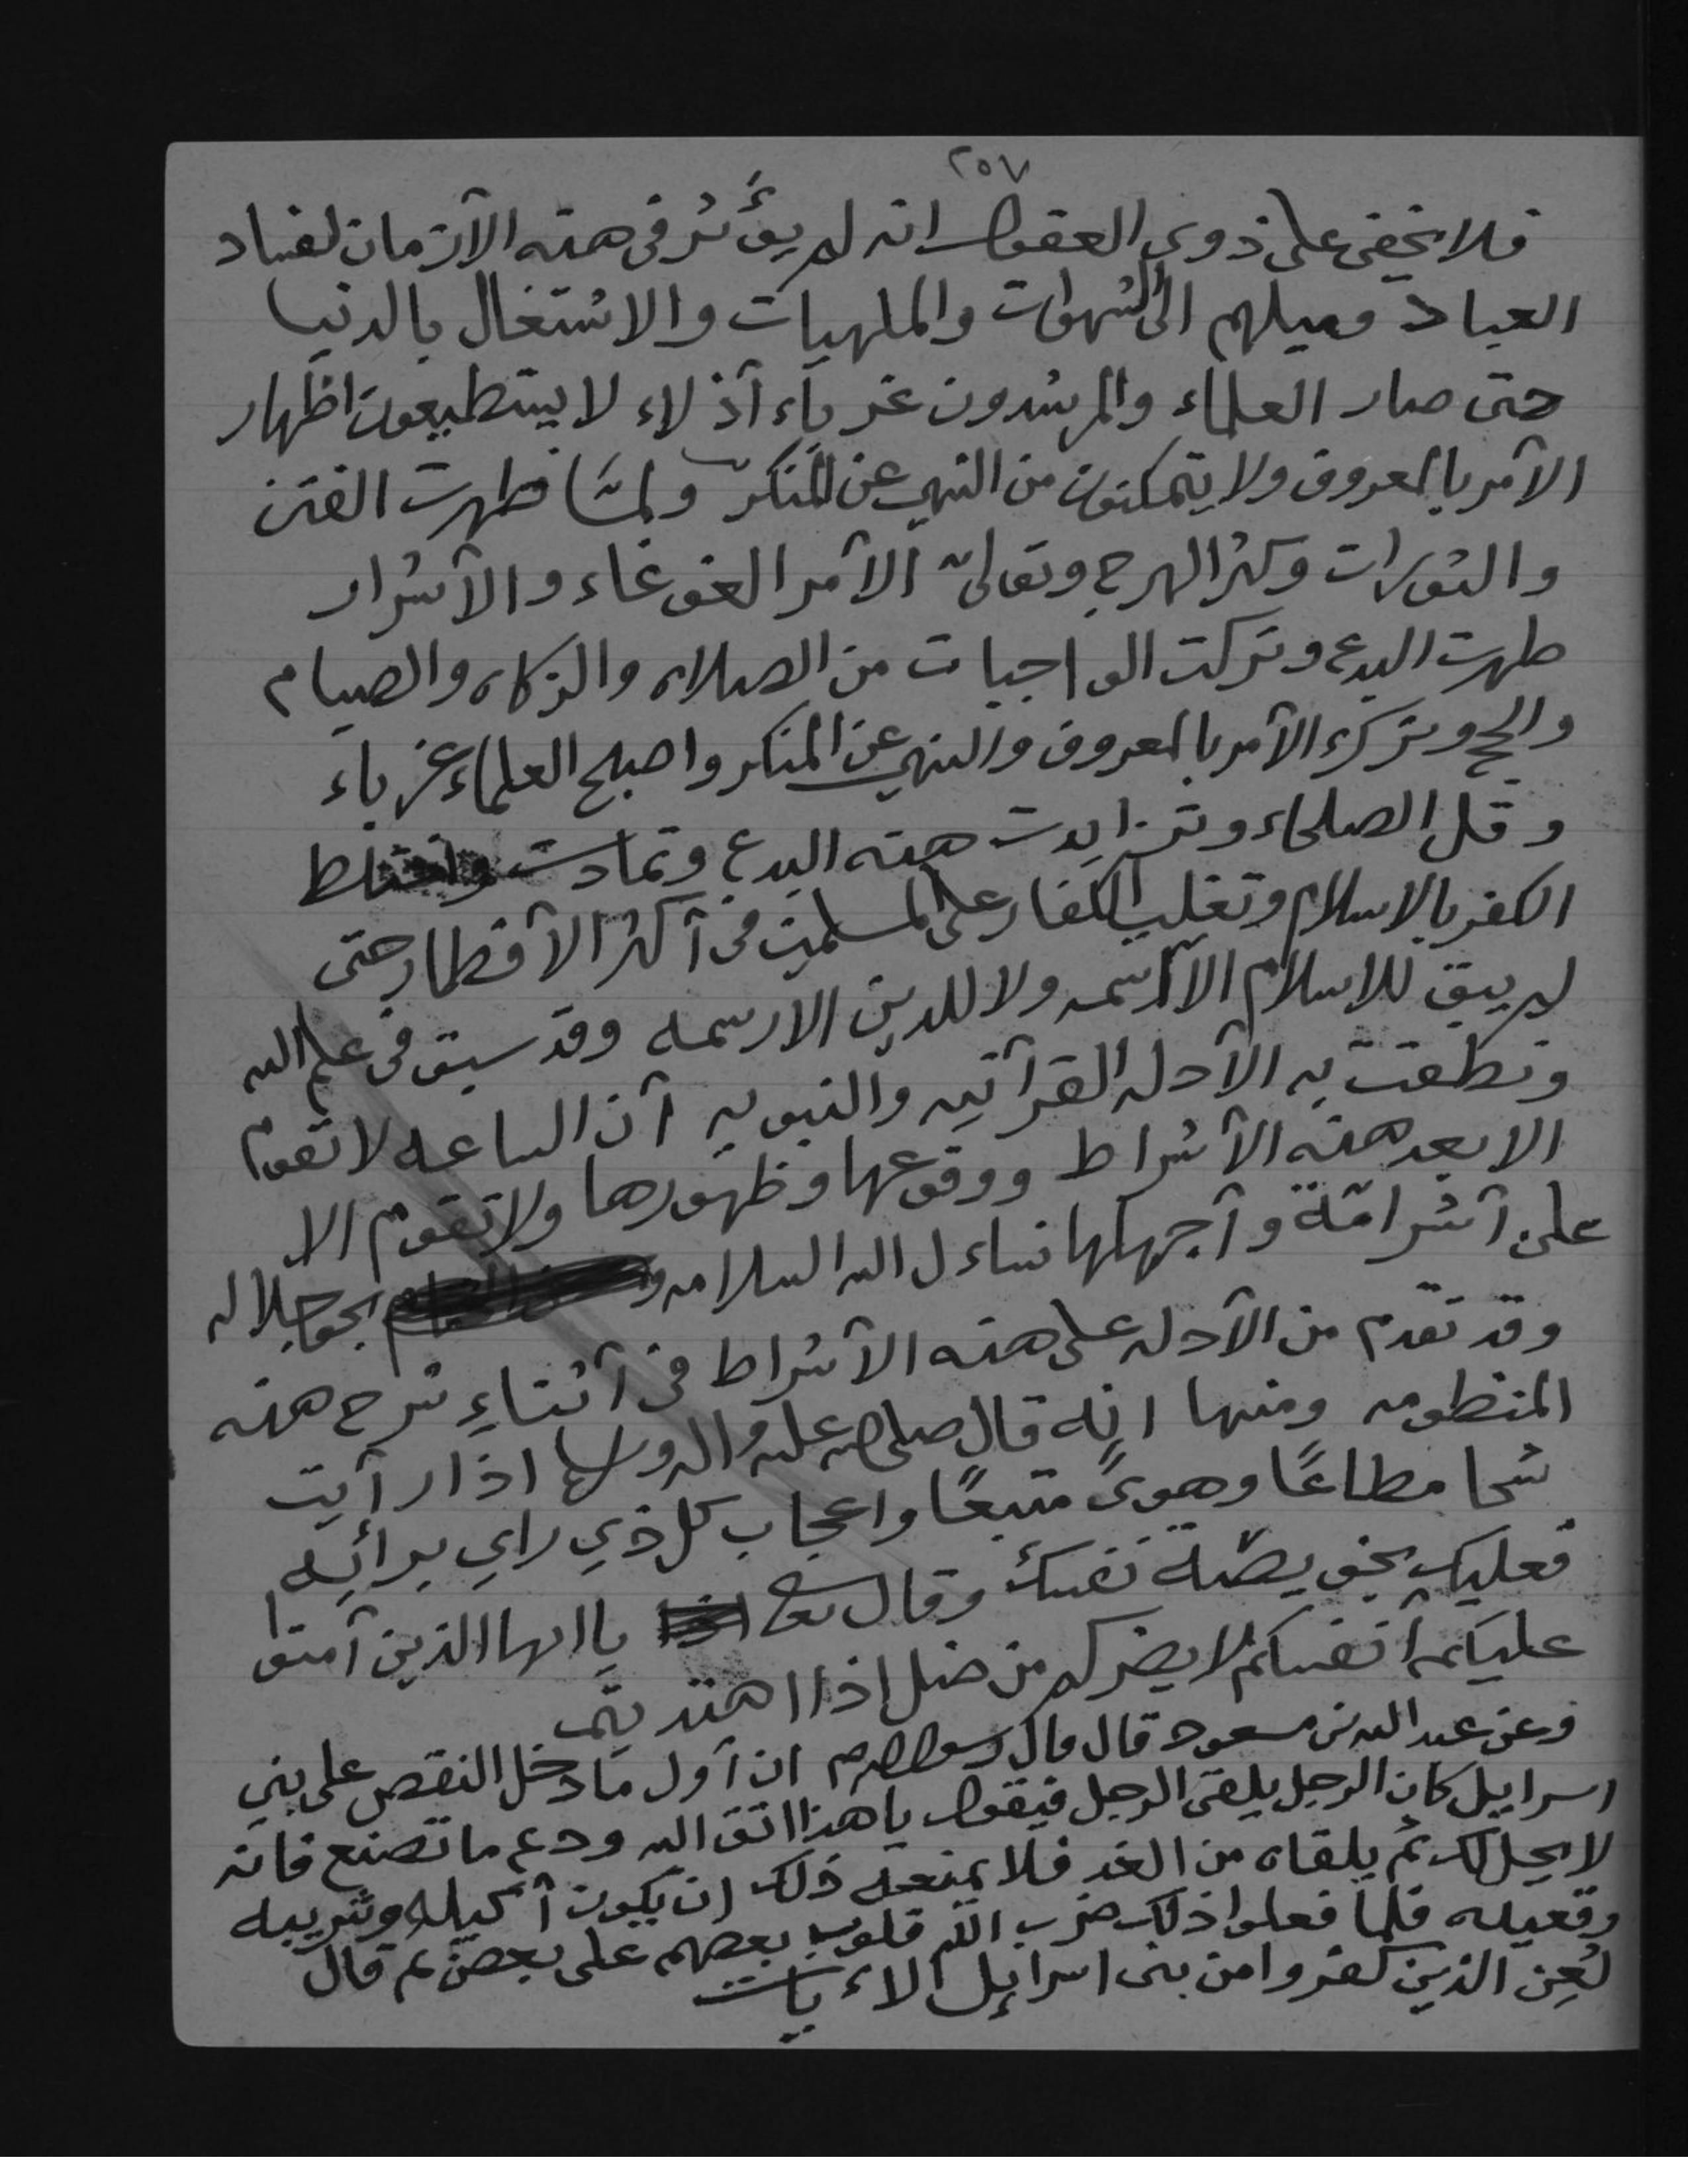 ٢٥٧
فلا يخفى على ذوي العقول انه لم يؤَثر في هذه الأزمان لفساد
العباد وميلهم الى الشهوات والملهيات والاشتغال بالدنيا
حتى صار العلماء والمرشدون غرباء أذلاء لا يستطيعون اظهار
الأمر بالمعروف ولا يتمكنون من النهي عن المنكر ولمّا ظهرت الفتن
والثورات وكثر الهرج وتولىّ الأمر الغوغاء والأشرار
ظهرت البدع وتركت الواجبات من الصلاه والزكاه والصيام
والحج وترك الأمر بالمعروف والنهي عن المنكر واصبح العلماء غرباء
وقل الصلحاء وتزايدت هذه البدع وتمادت واختلط
الكفر بالاسلام وتغلب الكفار على المسلمين في أكثر الأقطار حتى
لم يبق للاسلام الا اسمه ولا للدين الا رسمه وقد سبق في علم الله
ونطقت به الأدله القرآنيه والنبويه أن الساعه لا تقوم
الا بعد هذه الأشراط ووقوعها وظهورها ولا تقوم الا
على أشر امّة وأجهلها نساءل الله السلامه بحق جلاله
وقد تقدم من الأدله على هذه الأشراط في أثناءِ شرح هذه
المنظومه ومنها انه قال صلى الله عليه واله وسلم اذا رأيت
شحا مطاعًا وهوىً متبعًا واعجاب كل ذي راي برائيه
فعليك بخويصّة نفسك وقال تعالى يا ايها الذين آمنوا
عليكم أنفسكم لا يضركم من ضل إذا اهتديتم
وعن عبد الله بن مسعود قال قال رسول الله ان أول ما دخل النقص على بني
اسرايل كان الرجل يلقى الرجل فيقول يا هذا اتق الله ودع ما تصنع فانه
لا يحل لك ثم يلقاه من الغد فلا يمنعه ذلك ان يكون أكيله وشريبه
وقعيده فلما فعلوا ذلك ضرب الله قلوب بعضهم على بعض ثم قال
لُعِن الذين كفروا من بنى اسرايل الاءيات